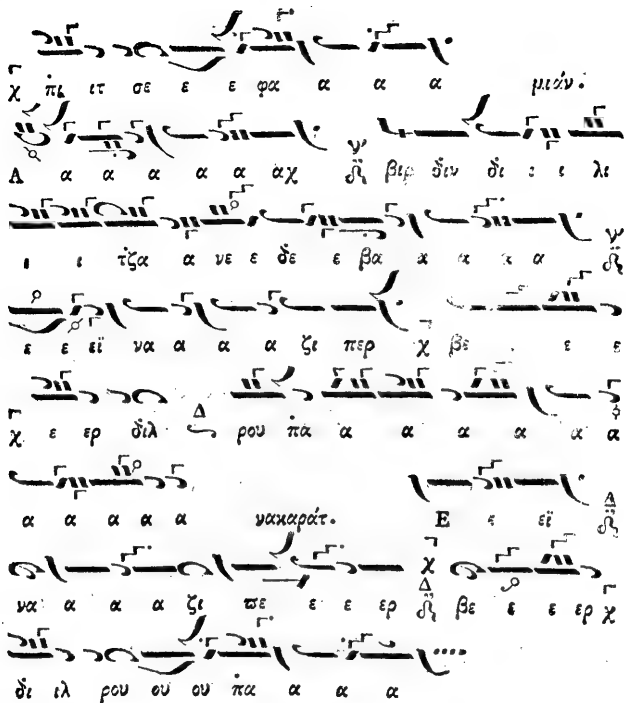 π̇ι ιτ σε ε ε φα α α α μιάν.
Α α α α α α ὰχ βιρ δ̇ιν δ̇ι ι ι λι
ι ι τ̇ζα α νε ε δε ε β̇α α α α α
ε ε εϊ να α α α ζι περ βε ε ε
ε ερ δ̇ιλ ρου π̇α α α α α α α
α α α α α νακαράτ. Ε ε εϊ
να α α α ζι πε ε ε ερ βε ε ε ερ
δ̇ι ιλ ρου ου ου π̇α α α α